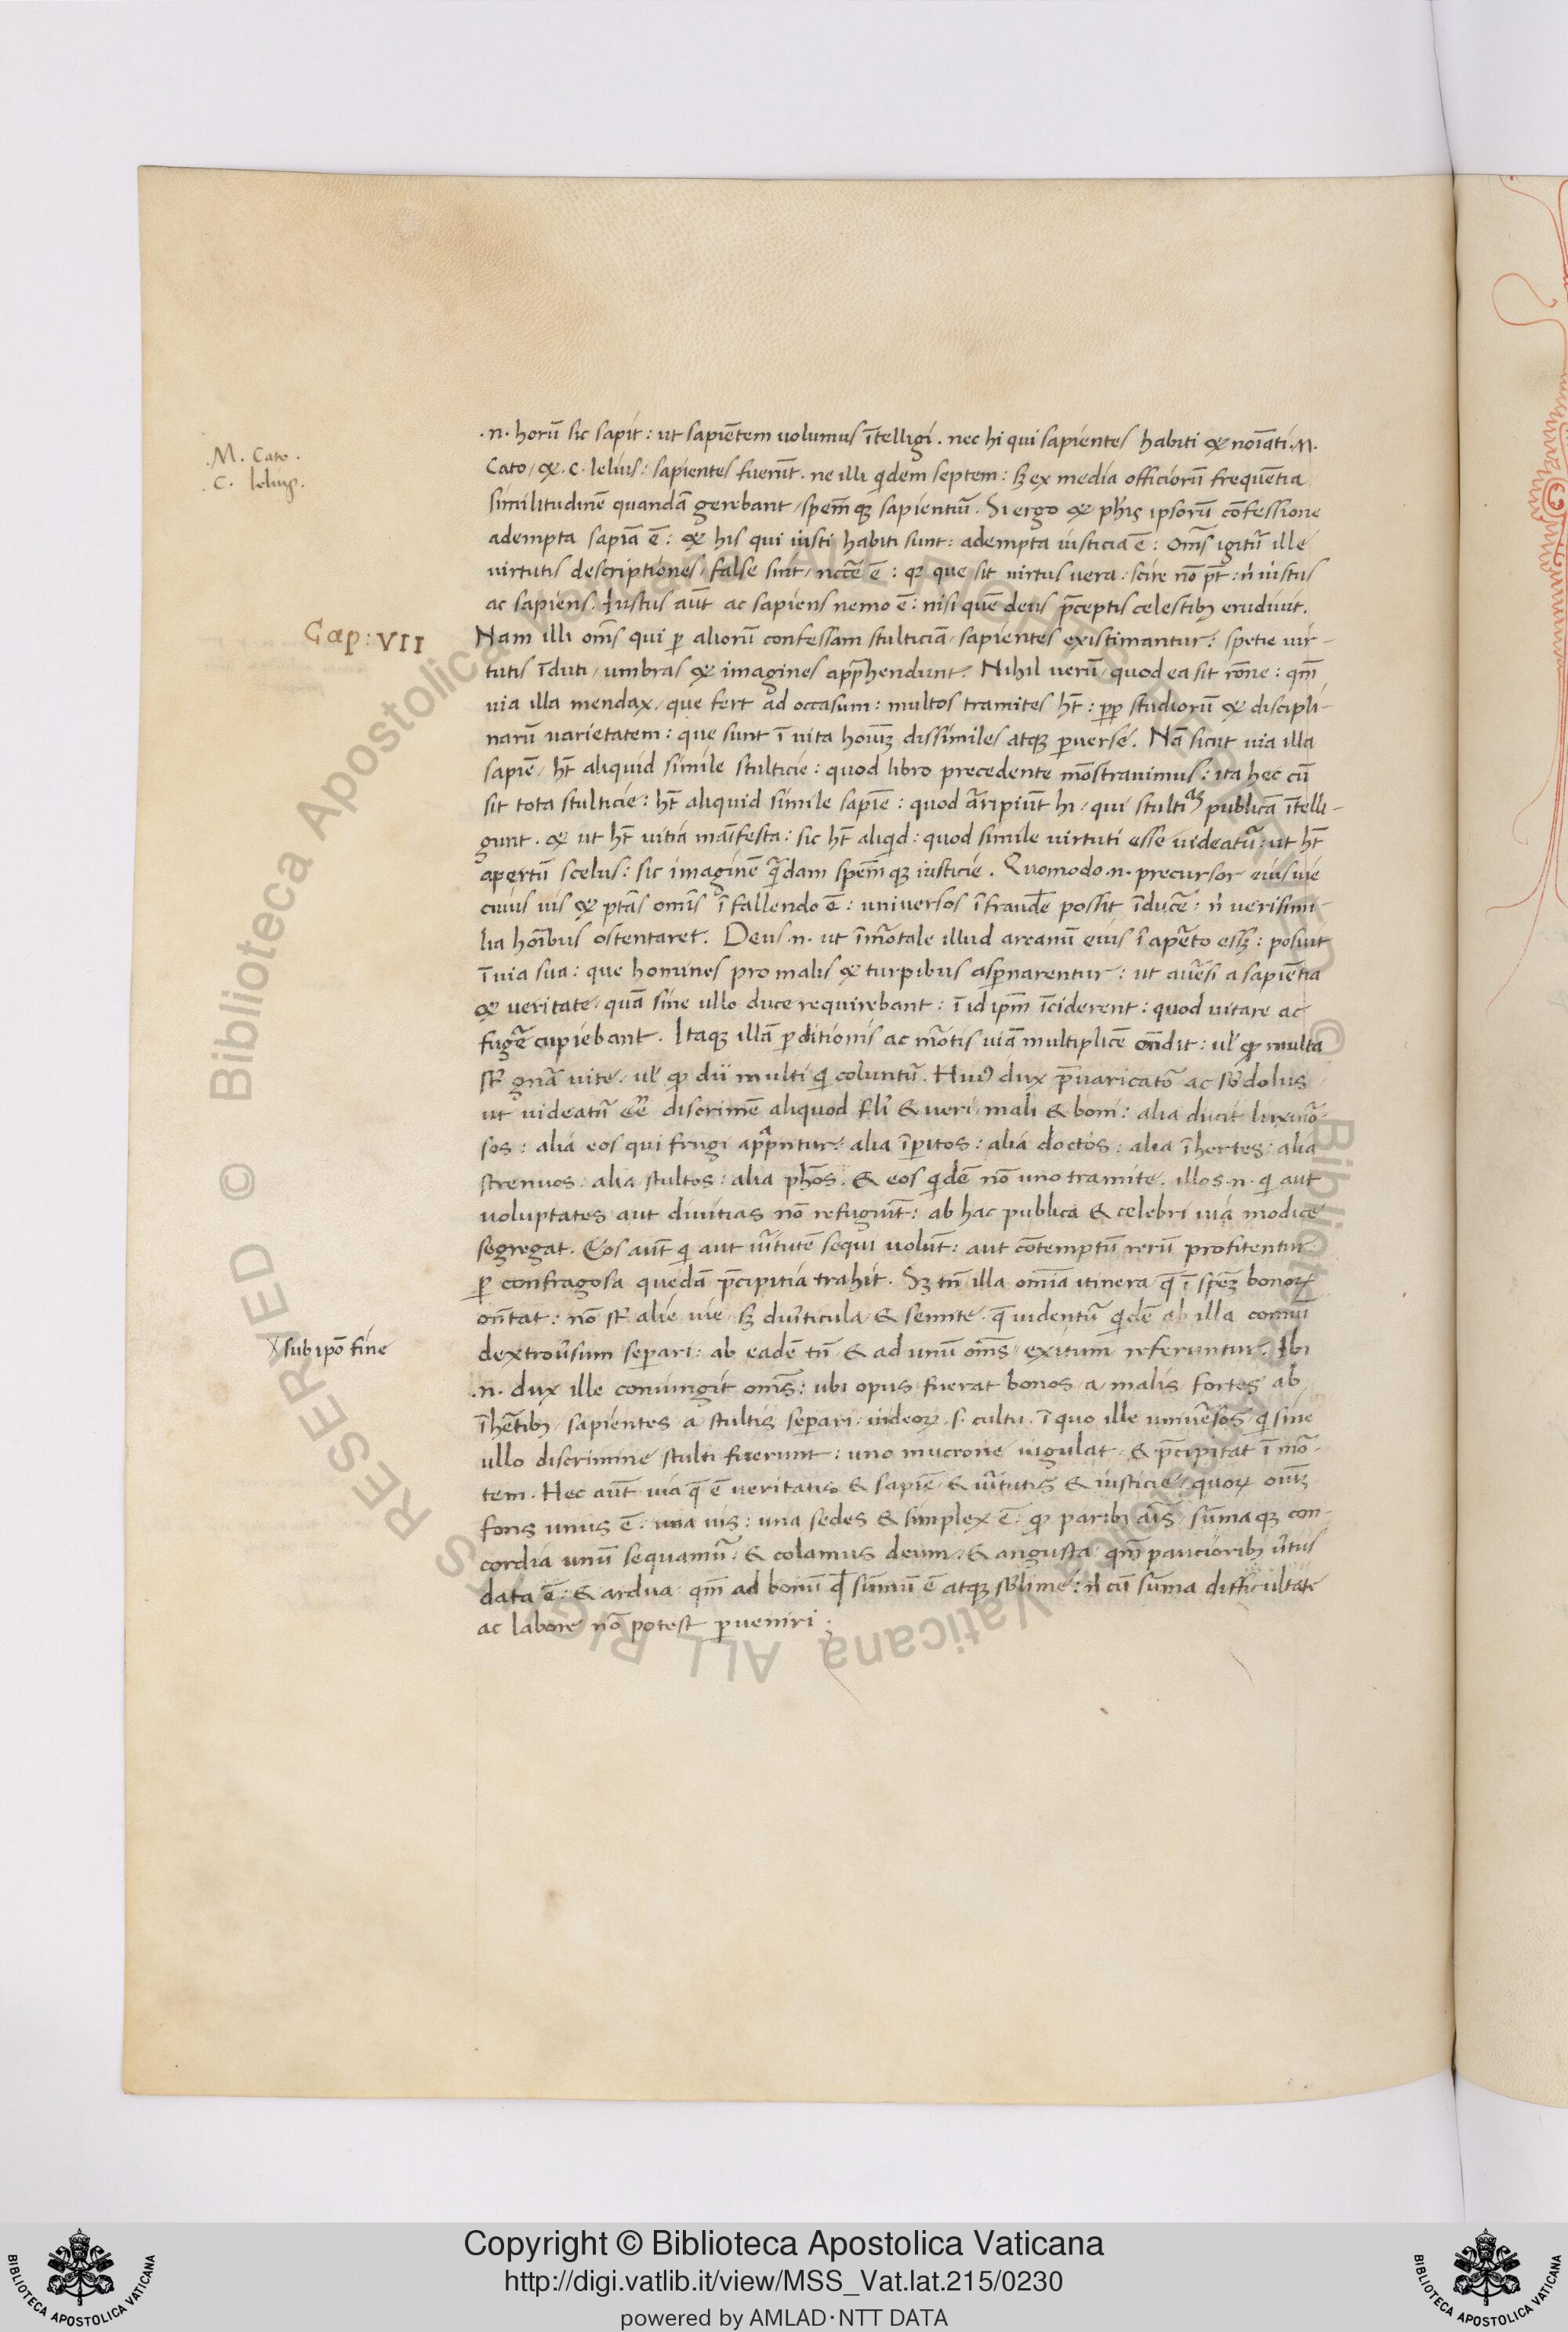 .M. Cato.
.C. leliuſ.
.n. horū sic sapit: ut sapiētem uolumus ītelligi. nec hi qui sapientes habiti & noīati .M.
Cato, & .C. lelius: sapientes fuerūt. ne illi qdem septem: sꝫ ex media officiorū frequētia
similitudinē quandā gerebant, spēmqꝫ sapientiū. Si ergo & phīs ipsorū cōfessione
adempta sapīa ē: & his qui iusti habiti sunt: adempta iusticia ē: Omēs igitur ille
virtutis descriptiones, false sūt, nccē ē: qꝫ que sit virtus vera, scire nō pōt: nī iustus
ac sapiens. Iustus aūt ac sapiens nemo ē: nisi quē deus p̄ceptis celestibꝫ erudiuit.
Cap: VII
Nam illi omēs qui ꝑ aliorū confessam stulticiā, sapientes existimantur: spetie uir-
tutis īduti, umbras & imagines app̄hendunt. Nihil verū, quod ea sit rōne: qm̄
uia illa mendax, que fert ad occasum: multos tramites hēt: ꝓp studiorū & discipli-
narū varietatem: que sunt ī uita hoīuꝫ dissimiles atqꝫ ꝑuerse. Nā sicut uia illa
sapiē, hēt aliquid simile stulticie: quod libro precedente mōstrauimus: ita hec cū
sit tota stulticie: hēt aliquid simile sapiē: quod arripiūt hi, qui stultiaꝫ publicā ītelli-
gunt. & ut hēt uitia māifesta: sic hēt aliqid: quod simile virtuti esse uideatur: ut hēt
apertū scelus: sic imaginē quādam spēmqꝫ iusticie. Quomodo .n. precursor eius uie
cuius uis & ptās omīs ī fallendo ē: universos ī fraudē possit īducē: nī verisimi-
lia hoībus ostentaret. Deus .n. ut īmortale illud arcanū eius ī aperto essꝫ: posuit
ī uia sua: que homines pro malis & turpibus aspnarentur: ut auersi a sapiētia
& veritate, quā sine ullo duce requirebant: ī id ipm̄ īciderent: quod uitare ac
fugere cupiebant. Itaqꝫ illā ꝑditionis ac mortis uiā multiplicē ondit: uł qꝫ multa
sūt gnā uite, uł qꝫ dii multi qi coluntur. Hui9 dux p̄uaricator ac sbdolus,
ut uideatur eē discrimē aliquod fłi & ueri, mali & boni: alia ducit luxurio-
sos: alia eos qui frugi appntur: alia īꝑitos: alia doctos: alia īhertes: alia
strenuos: alia stultos: alia phōs. & eos qdē nō uno tramite. illos .n. qi aut
voluptates aut divitias nō refugiūt: ab hac publica & celebri uia modice
segregat. Eos aūt qi aut uirtutē sequi volūt: aut cōtemptū rerū profitentur
ꝑ confragosa quedā p̄cipitia trahit. Sꝫ tn̄ illa omīa itinera q̄ ī spēꝫ bonoꝝ
ōntat: nō sūt alie vie, sꝫ diuerticula & semite, q̄ uidentur qidē ab illa comūi
⸌sub ipō fine
dextrouersum separi: ab eadē tn̄ & ad unū omēs exitum referuntur. Ibi
.n. dux ille coniungit omēs: ubi opus fuerat bonos, a malis fortes ab
īhertibꝫ, sapientes a stultis separi: in deoꝝ .s. cultu. ī quo ille universos qi sine
ullo discrimine stulti fuerunt: uno mucrone iugulat, & p̄cipitat ī mor-
tem. Hec aūt uia q̄ ē veritatis & sapiē & uirtutis & iusticie, quoꝝ oīuꝫ
fons unus ē. una uis: una sedes & simplex ē. qꝫ paribꝫ aīs, sūmaqꝫ con-
cordia unū sequamur: & colamus deum, & angusta qm̄ paucioribꝫ v̄tus
data ē: & ardua qm̄ ad bonū qd sūmū ē atqꝫ sblime: nī cū sūma difficultate
ac labore nō potest ꝑueniri;
Copyright © Biblioteca Apostolica Vaticana
http://digi.vatlib.it/view/MSS_Vat.lat.215/0230
powered by AMLAD·NTT DATA